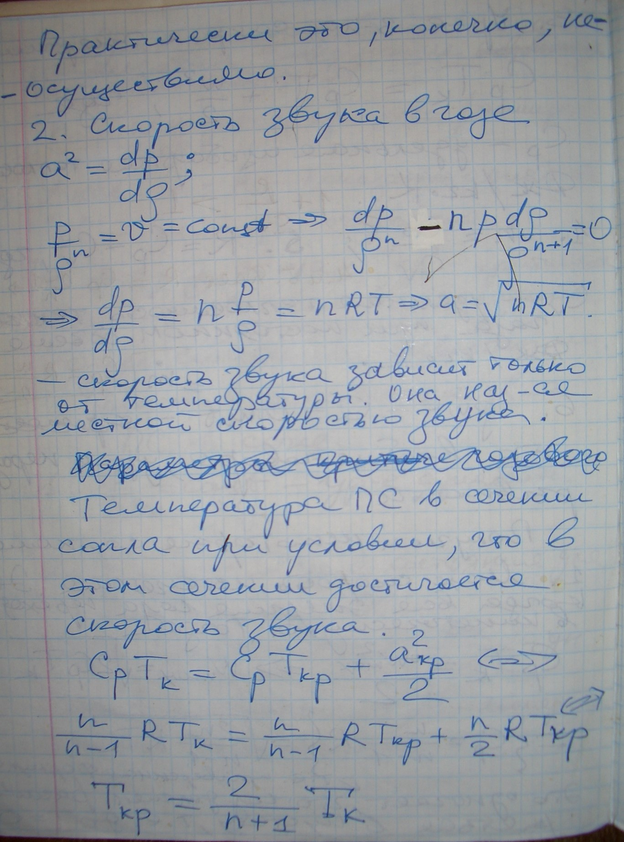 Практически это, конечно, не-
- осуществимо.
2. Скорость звука в газе
a² = dp/dρ ;
p/ρⁿ = υ = const => dp/ρⁿ - n p dρ/ρⁿ⁺¹ = 0
=> dp/dρ = n p/ρ = nRT => a = √nRT.
- скорость звука зависит только
от температуры. Она наз-ся
местной скоростью звука.
Температура ПС в сечении
сопла при условии, что в
этом сечении достигается
скорость звука.
Cp Tк = Cp Tкр + a²кр/2 <=>
n/n-1 R Tк = n/n-1 R Tкр + n/2 R Tкр <=>
Tкр = 2/n+1 Tк